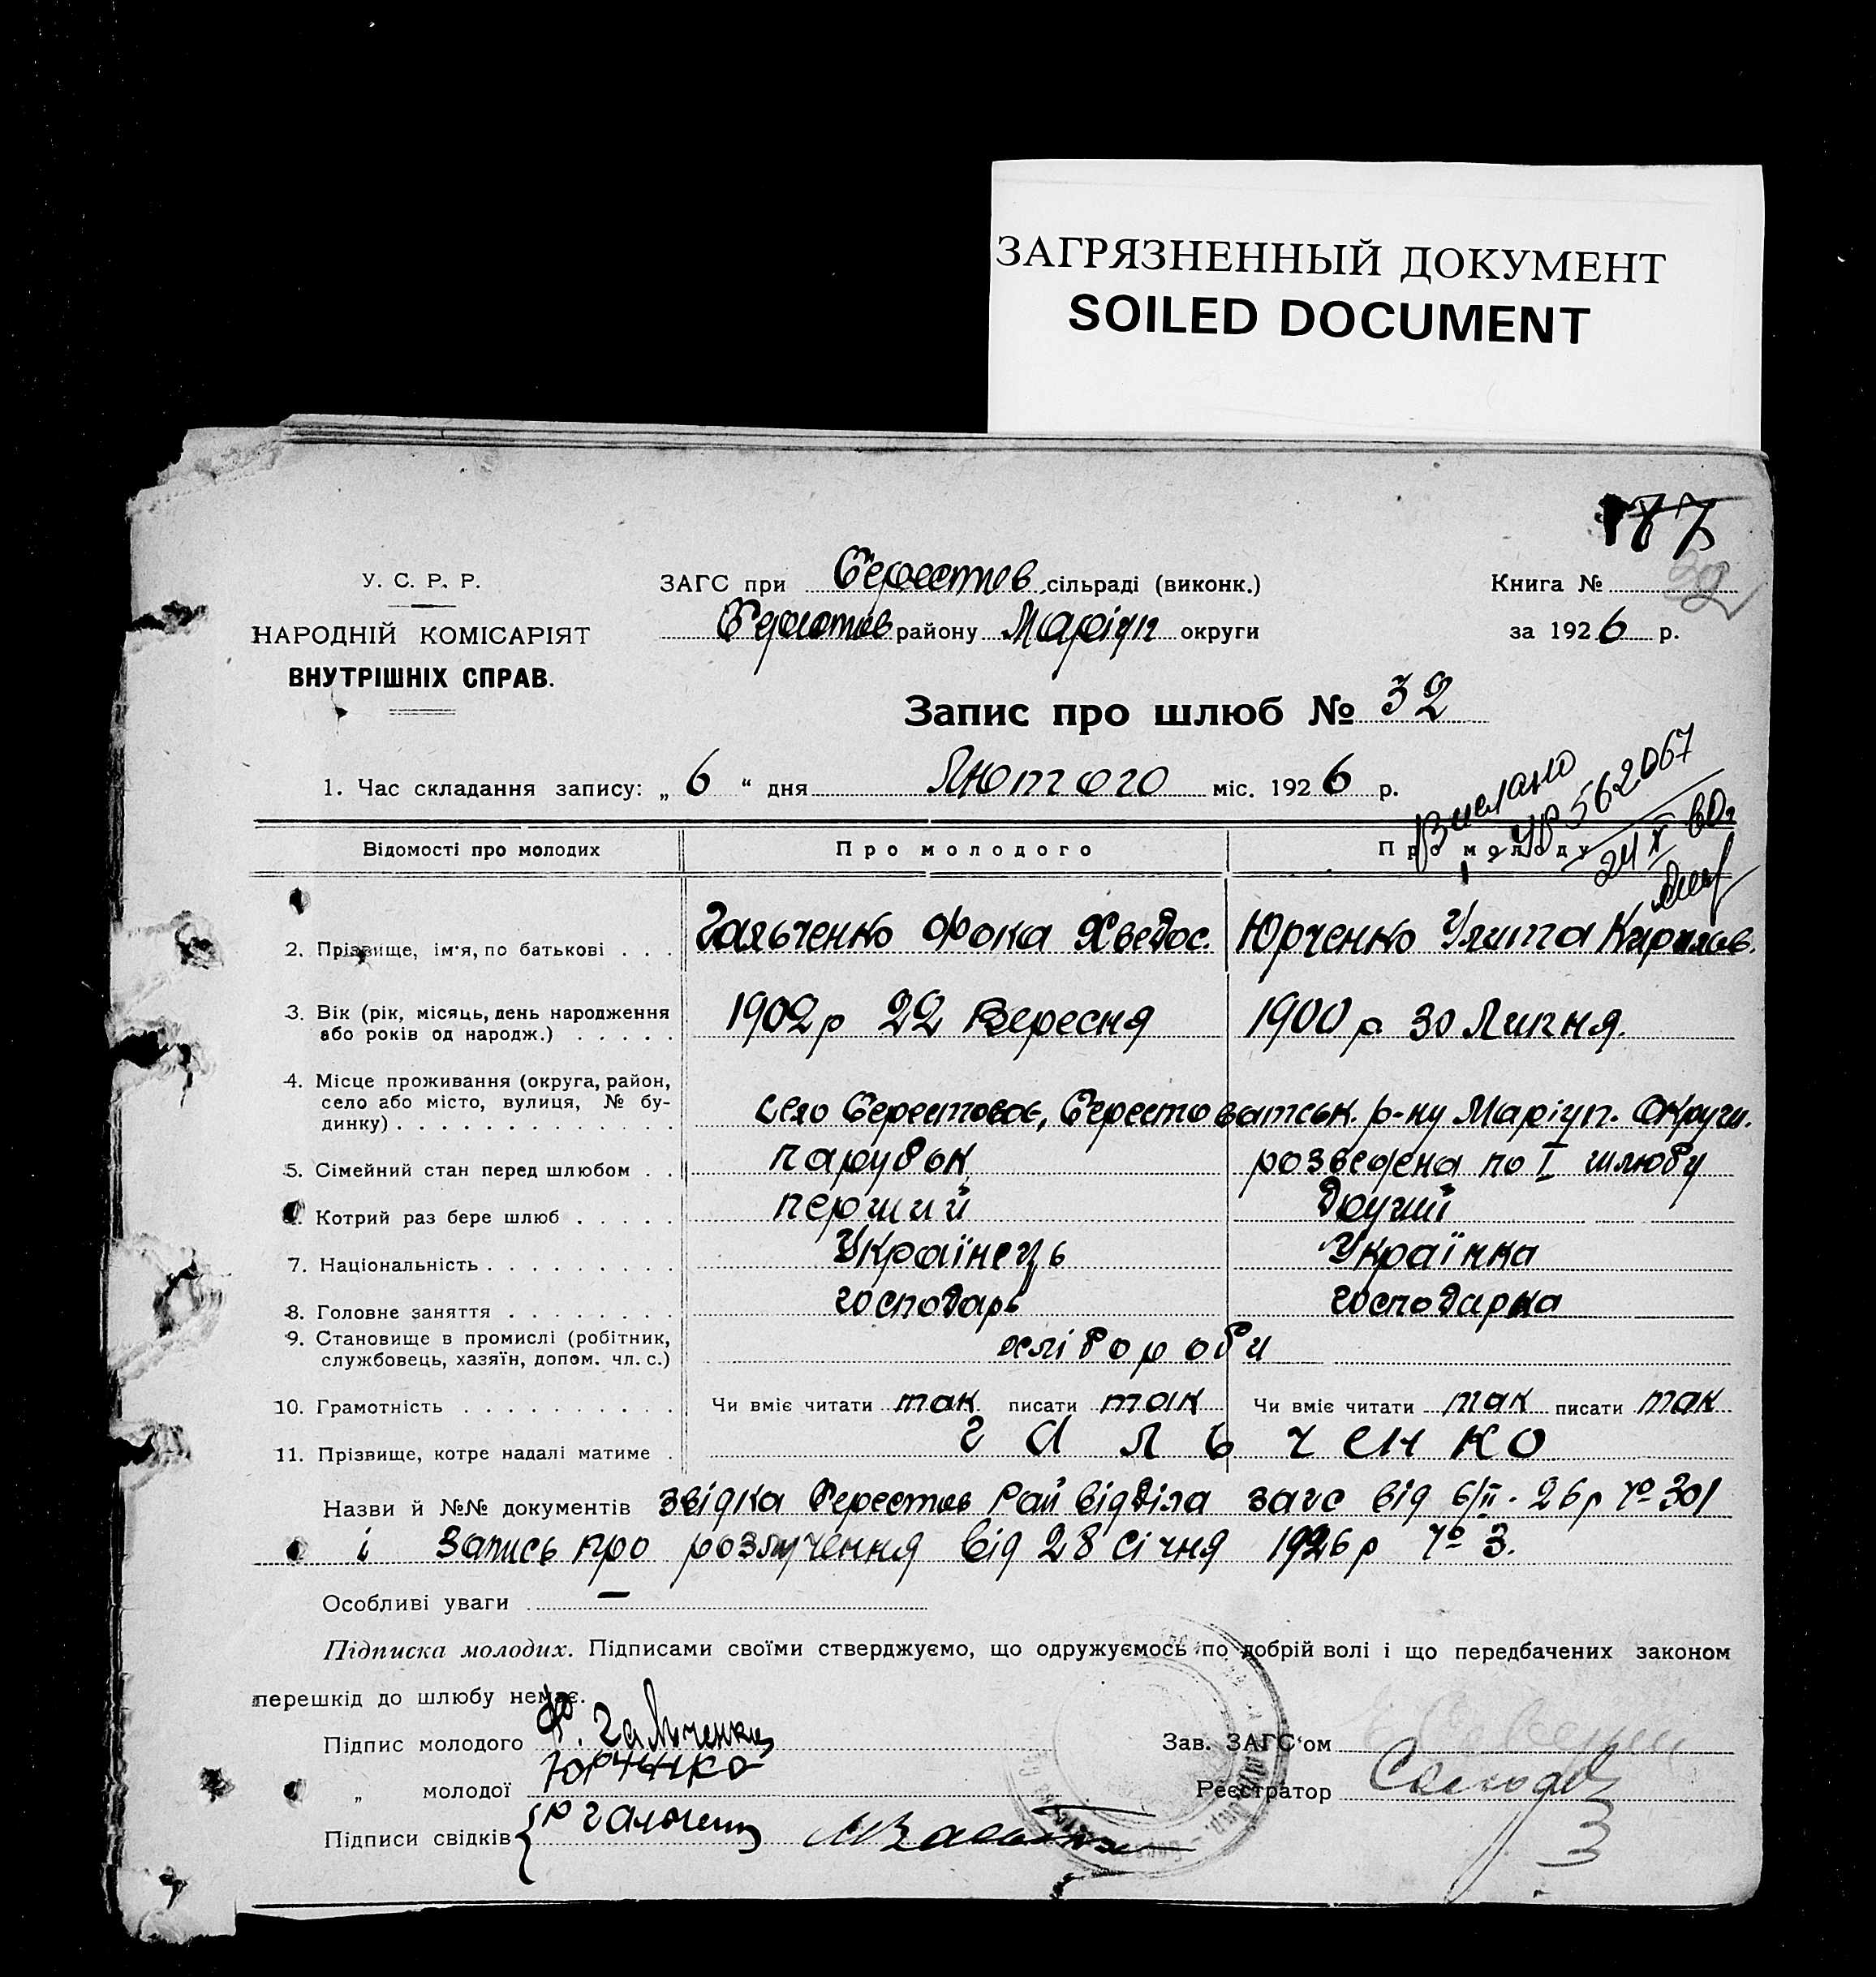 ЗАГРЯЗНЕННЫЙ ДОКУМЕНТ
SOILED DOCUMENT
У. С. Р. Р.
НАРОДНІЙ КОМІСАРІЯТ
ВНУТРІШНІХ СПРАВ.
ЗАГС при Берестов. сільраді (виконк.)
Берестов району Маріуп округи
Книга №
32
за 1926 р.
Запис про шлюб № 32
1. Час складання запису: „ 6 “ дня Лютого міс. 1926 р.
Вислано
УР 562067
24 X 60г
Відомості про молодих
Про молодого
Про молоду
2. Прізвище, ім'я, по батькові . . . Гальченко Фока Хведос. Юрченко Улита Кирилов.
3. Вік (рік, місяць, день народження
або років од народж.) . . . . . 1902 р 22 Вересня 1900 р 30 Липня.
4. Місце проживання (округа, район,
село або місто, вулиця, № бу-
динку) . . . . . . . . . . . . . село Берестовоє, Берестоватськ. р-ну Маріуп. Округи.
5. Сімейний стан перед шлюбом . . парубок розведена по I шлюбу
Котрий раз бере шлюб . . . . . перший Другий
7. Національність . . . . . . . . . Українець Українка
8. Головне заняття . . . . . . . . господарь господарка
9. Становище в промислі (робітник,
службовець, хазяїн, допом. чл. с.) хлібороби
10. Грамотність . . . . . . . . . . Чи вміє читати так писати так Чи вміє читати так писати так
11. Прізвище, котре надалі матиме . Гальченко
Назви й №№ документів звідка Берестов Рай відділа загс від 6/II. 26 р № 301
і Запись про розлучення від 28 січня 1926 р № 3.
Особливі уваги —
Підписка молодих. Підписами своїми стверджуємо, що одружуємось по добрій волі і що передбачених законом
перешкід до шлюбу немає.
Підпис молодого Ф. Гальченко
„ молодої Юрченко
Зав. ЗАГС'ом
Реєстратор
Підписи свідків